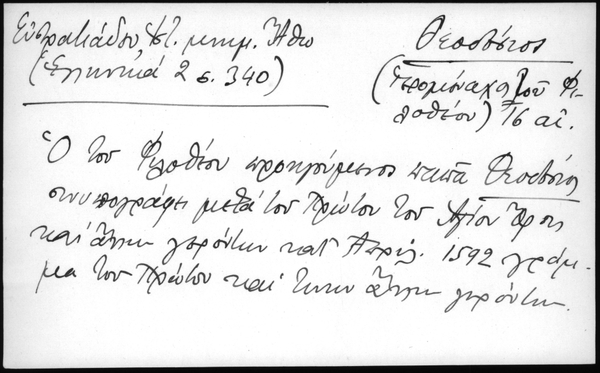 Εὐστρατιάδου, ἱστ. μνημ. Ἄθω
(Ἑλληνικά 2 σ. 340)
Θεοδόσιος
(ἱερομόναχος τοῦ Φι-
λοθέου) 16 αἰ.
Ὁ τοῦ Φιλοθέου προηγούμενος παπᾶ Θεοδόσιος
συνυπογράφει μετά τοῦ Πρώτου τοῦ Ἁγίου Ὄρους
καί ἄλλων γερόντων κατ' Ἀπρίλ. 1592 γράμ-
μα τοῦ Πρώτου καί τινων ἄλλων γερόντων.